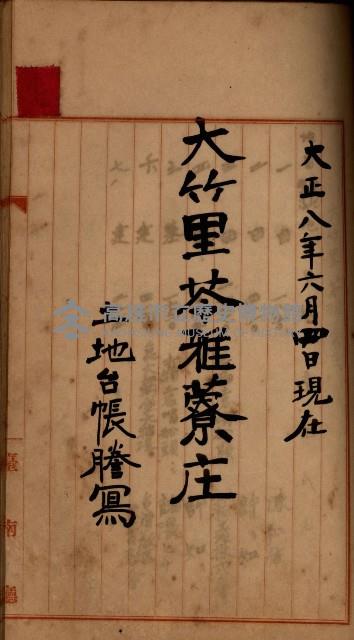 大正八年六月四日現在
大竹里苓雅藔庄
土地台帳謄寫
高雄市立歷史博物館
臺南廳